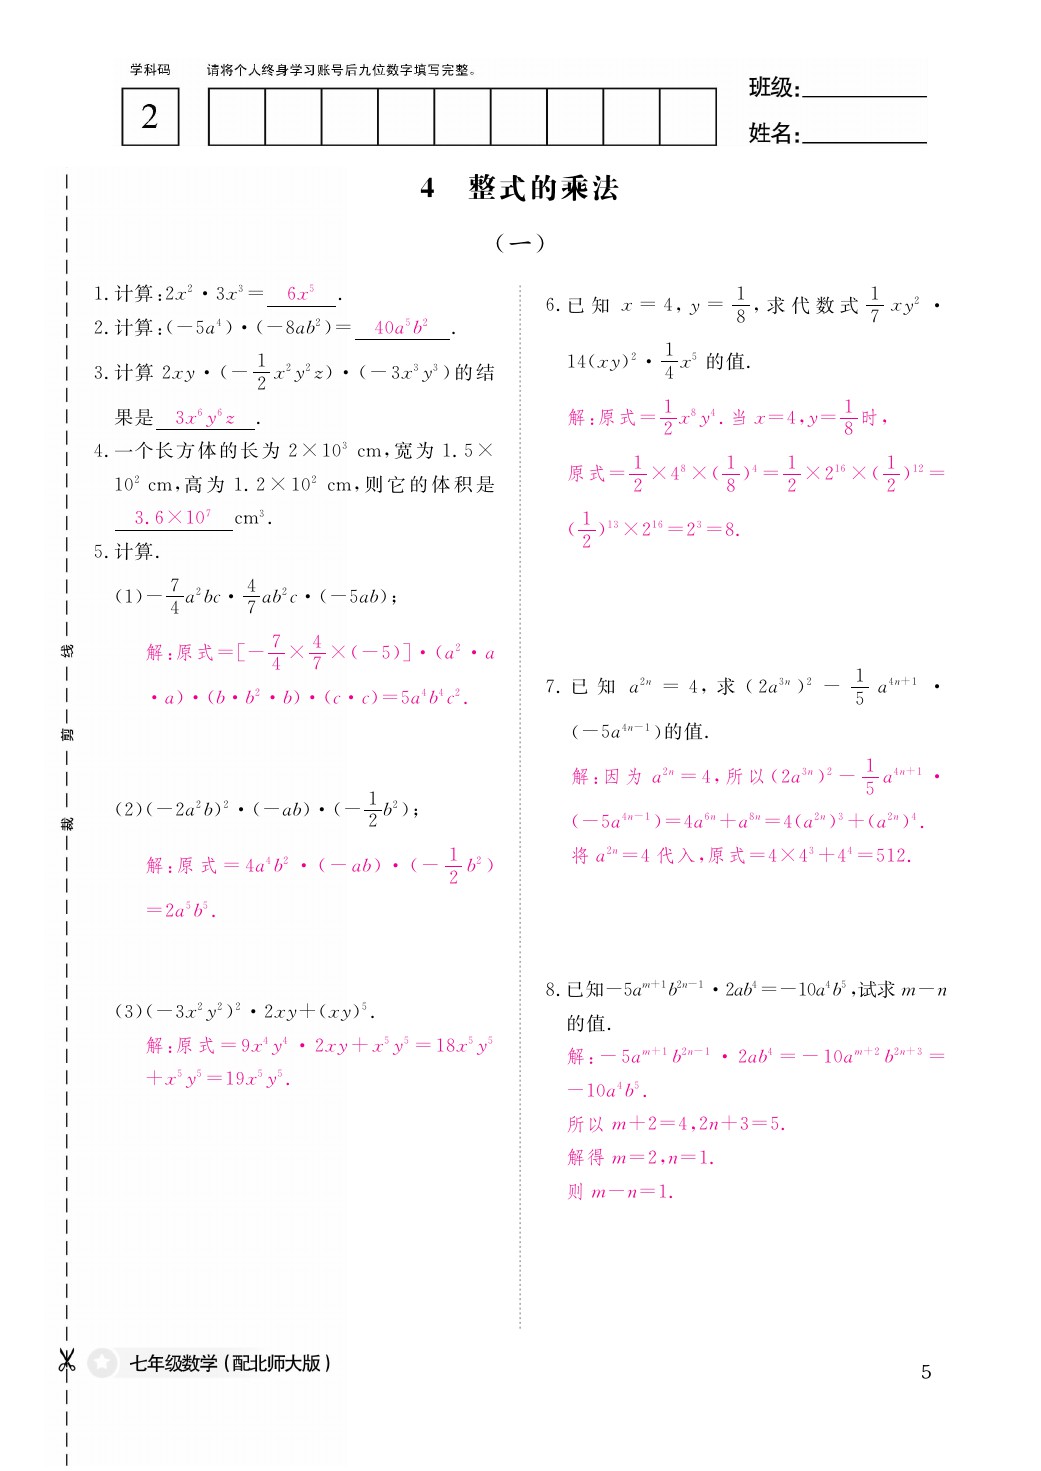 学科码 请将个人终身学习账号后九位数字填写完整。
2
班级:
姓名:
4 整式的乘法
(一)
1.计算:2x²·3x³= 6x⁵ .
2.计算:(-5a⁴)·(-8ab²)= 40a⁵b² .
3.计算 2xy·(-1/2x²y²z)·(-3x³y³)的结
果是 3x⁶y⁶z .
4.一个长方体的长为 2×10³ cm,宽为 1.5×
10² cm,高为 1.2×10² cm,则它的体积是
3.6×10⁷ cm³.
5.计算.
(1)-7/4a²bc·4/7ab²c·(-5ab);
解:原式=[-7/4×4/7×(-5)]·(a²·a
·a)·(b·b²·b)·(c·c)=5a⁴b⁴c².
(2)(-2a²b)²·(-ab)·(-1/2b²);
解:原式=4a⁴b²·(-ab)·(-1/2b²)
=2a⁵b⁵.
(3)(-3x²y²)²·2xy+(xy)⁵.
解:原式=9x⁴y⁴·2xy+x⁵y⁵=18x⁵y⁵
+x⁵y⁵=19x⁵y⁵.
6.已知 x=4,y=1/8,求代数式1/7xy²·
14(xy)²·1/4x⁵的值.
解:原式=1/2x⁸y⁴.当 x=4,y=1/8时,
原式=1/2×4⁸×(1/8)⁴=1/2×2¹⁶×(1/2)¹²=
(1/2)¹³×2¹⁶=2³=8.
7.已知 a²ⁿ=4,求(2a³ⁿ)²-1/5a⁴ⁿ⁺¹·
(-5a⁴ⁿ⁻¹)的值.
解:因为 a²ⁿ=4,所以(2a³ⁿ)²-1/5a⁴ⁿ⁺¹·
(-5a⁴ⁿ⁻¹)=4a⁶ⁿ+a⁸ⁿ=4(a²ⁿ)³+(a²ⁿ)⁴.
将 a²ⁿ=4 代入,原式=4×4³+4⁴=512.
8.已知-5aᵐ⁺¹b²ⁿ⁻¹·2ab⁴=-10a⁴b⁵,试求 m-n
的值.
解:-5aᵐ⁺¹b²ⁿ⁻¹·2ab⁴=-10aᵐ⁺²b²ⁿ⁺³=
-10a⁴b⁵.
所以 m+2=4,2n+3=5.
解得 m=2,n=1.
则 m-n=1.
裁 剪 线
七年级数学(配北师大版)
5